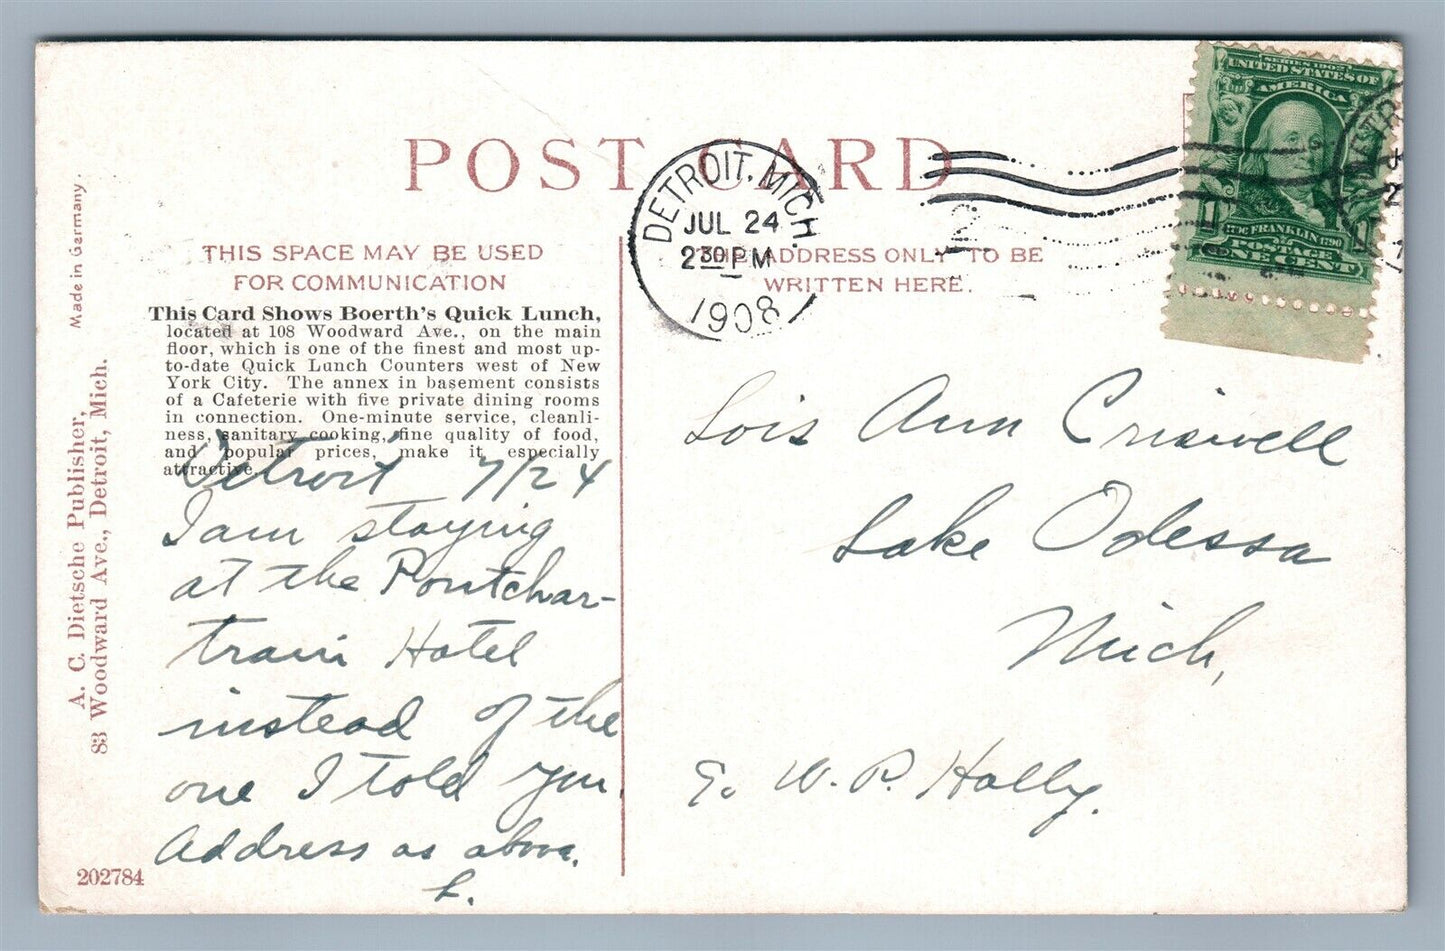 POST CARD
DETROIT, MICH.
JUL 24
2 30 PM
1908
SERIES 1902
UNITED STATES OF
AMERICA
FRANKLIN 1790
POSTAGE
ONE CENT
THIS SPACE MAY BE USED
FOR COMMUNICATION
ADDRESS ONLY TO BE
WRITTEN HERE.
This Card Shows Boerth's Quick Lunch,
located at 108 Woodward Ave., on the main
floor, which is one of the finest and most up-
to-date Quick Lunch Counters west of New
York City. The annex in basement consists
of a Cafeterie with five private dining rooms
in connection. One-minute service, cleanli-
ness, sanitary cooking, fine quality of food,
and popular prices, make it especially
attractive.
Detroit 7/24
I am staying
at the Pontchar-
train Hotel
instead of the
one I told you.
Address as above.
L.
Lois Ann Criswell
Lake Odessa
Mich,
W. P. Holly.
Made in Germany.
A. C. Dietsche Publisher,
83 Woodward Ave., Detroit, Mich.
202784